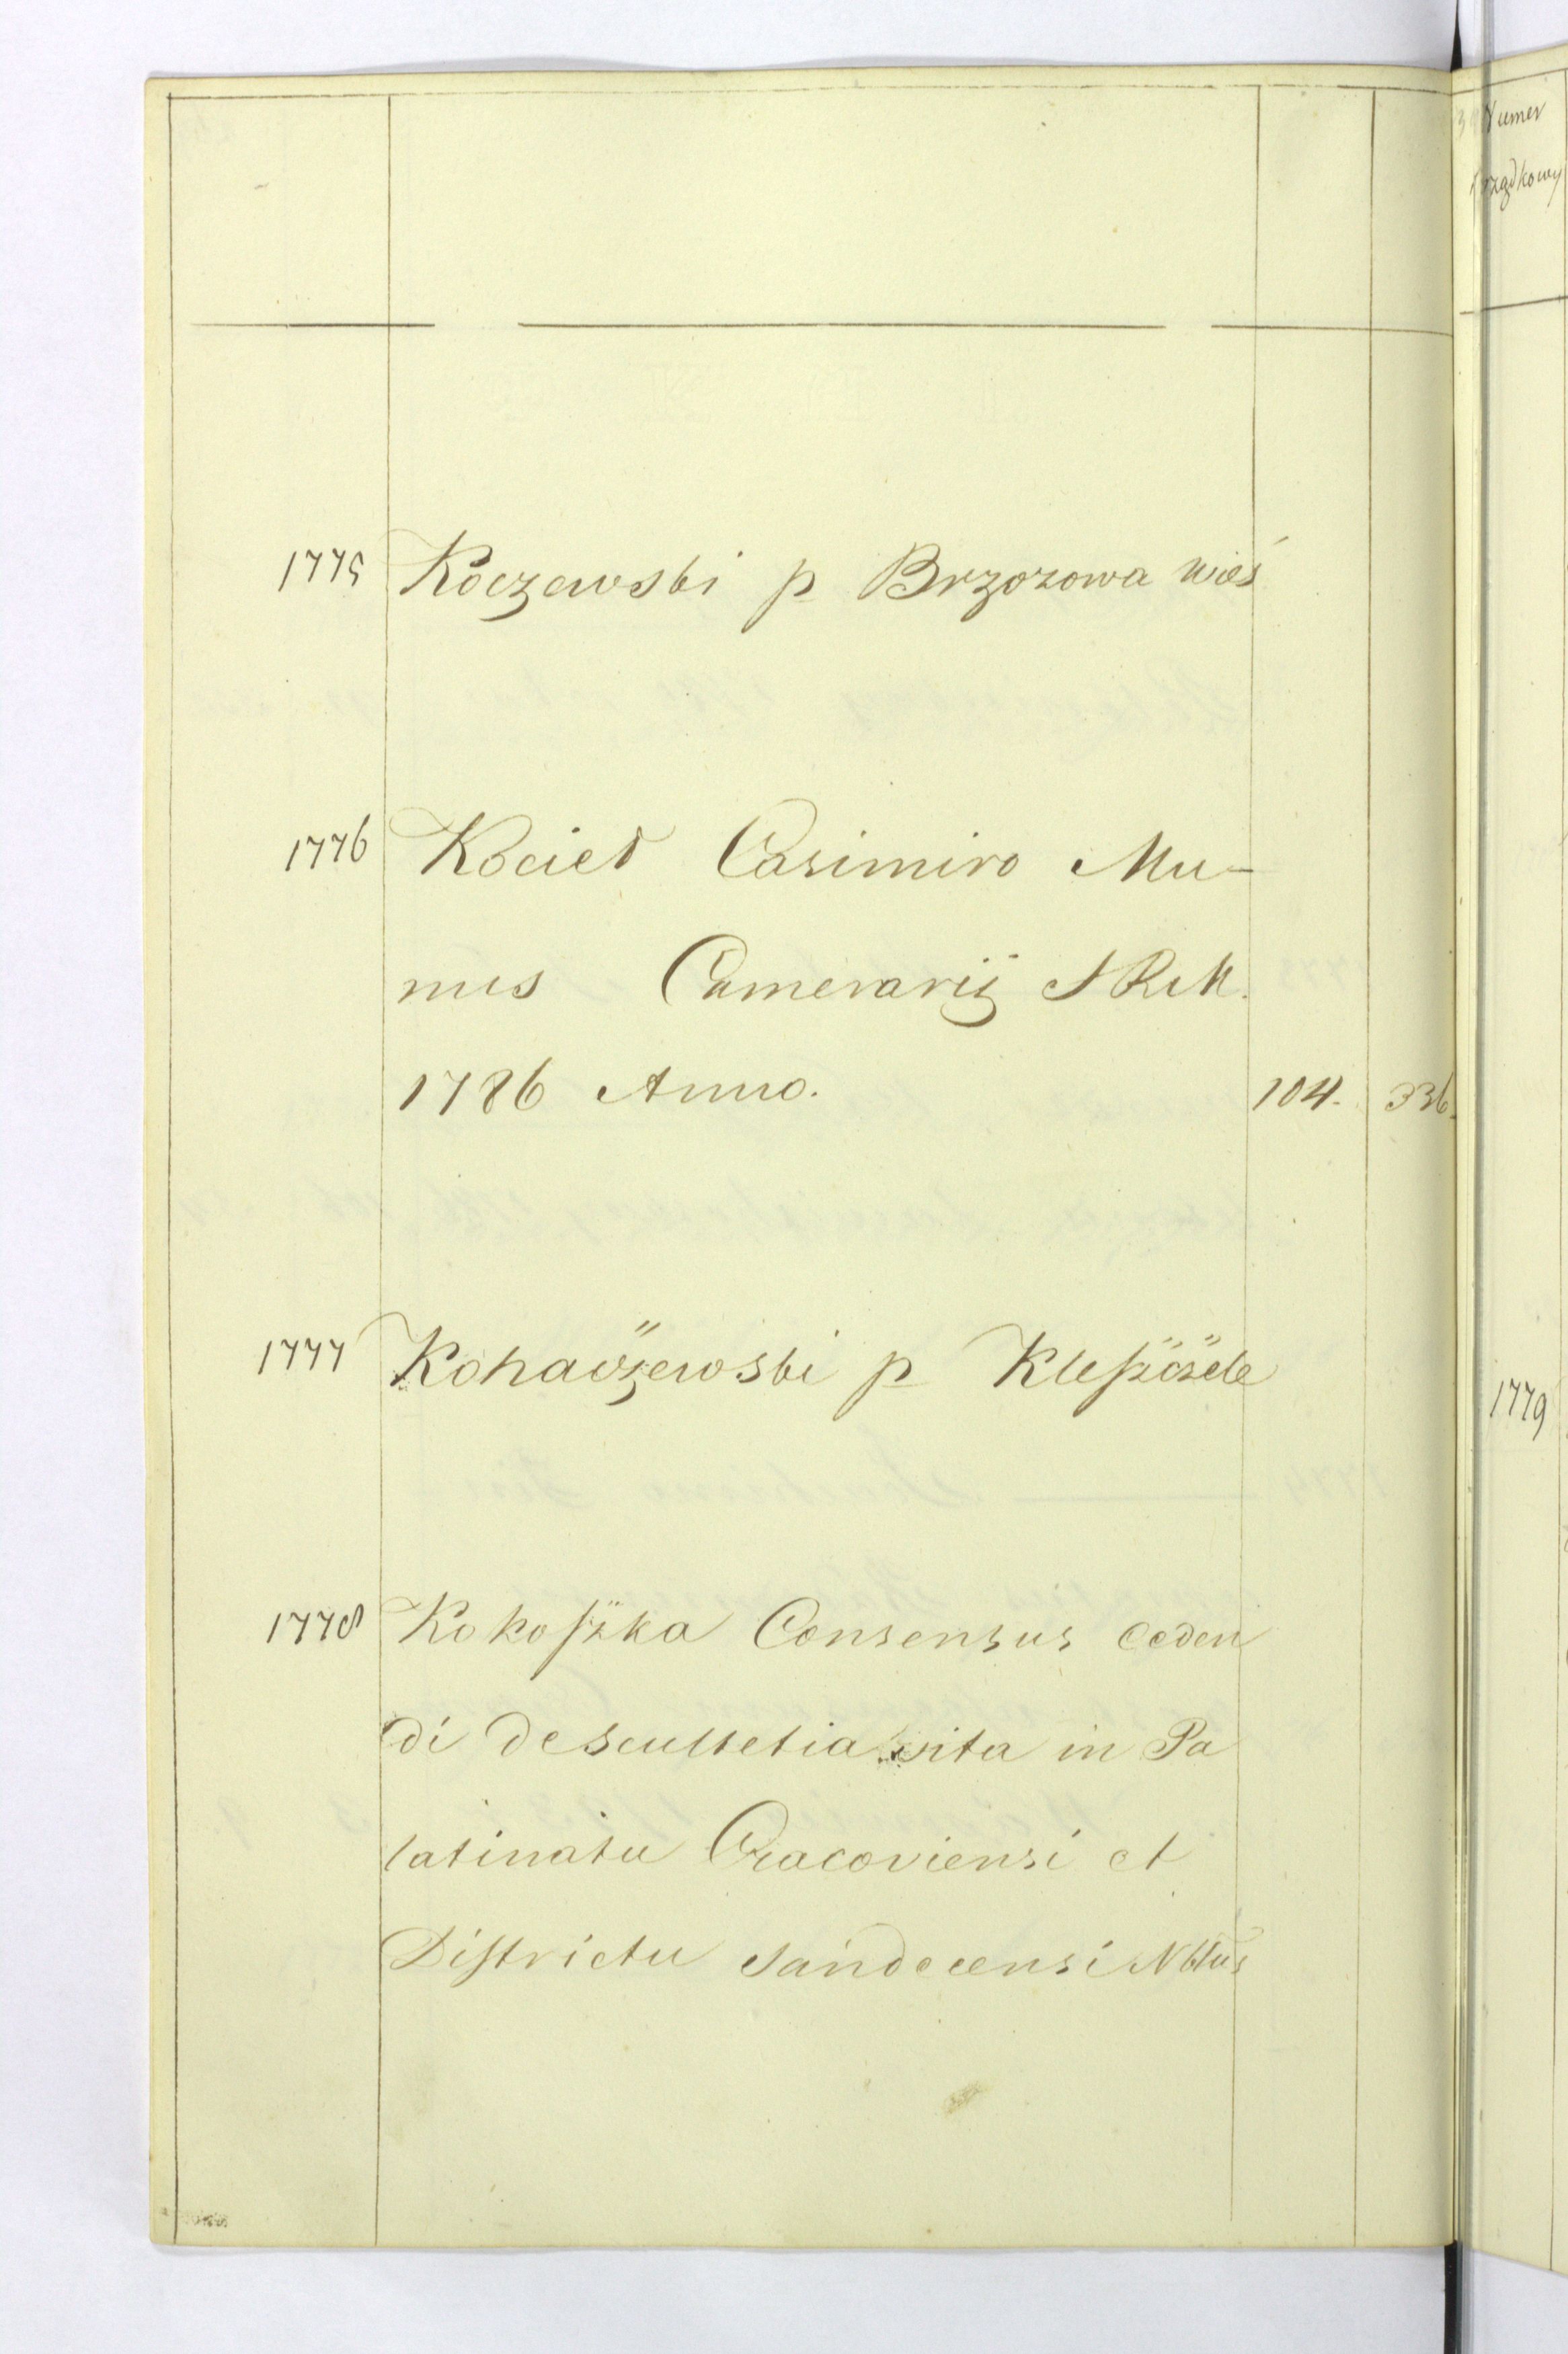 1775 Koczewski p Brzozowa wieś
1776 Kocieł Casimiro Mu-
nus Camerarij S R M.
1786 Anno. 104. 336.
1777 p
1778 Kokoszka Consensus ceden
di de Scultetia sita in Pa
latinatu Cracoviensi et
Districtu Sandecensi Nblus
Numer
1779